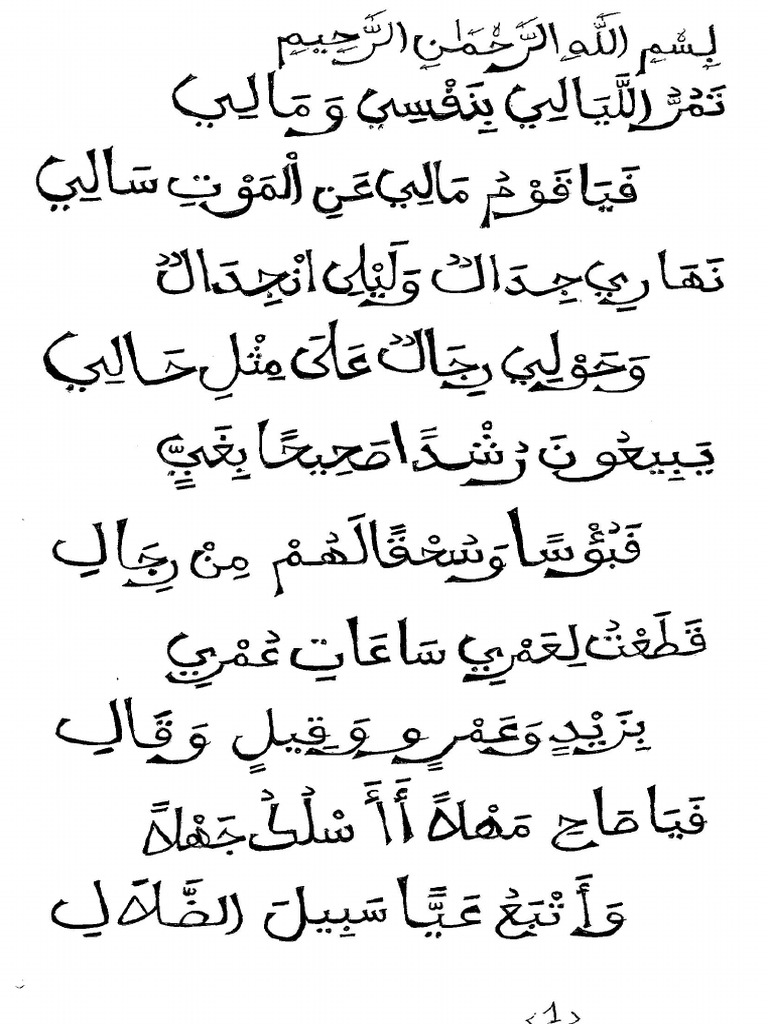 بِسْمِ اللَّهِ الرَّحْمَٰنِ الرَّحِيمِ
تَمُرُّ اللَّيَالِي بِنَفْسِي وَمَالِي
فَيَا قَوْمُ مَالِي عَنِ الْمَوْتِ سَالِي
نَهَارِي جِدَالٌ وَلَيْلِي انْجِدَالٌ
وَحَوْلِي رِجَالٌ عَلَى مِثْلِ حَالِي
يَبِيعُونَ رُشْدًا صَحِيحًا بِغَيٍّ
فَبُؤْسًا وَسُحْقًا لَهُمْ مِنْ رِجَالِ
قَطَعْتُ لِعَمْرِي سَاعَاتِ عُمْرِي
بِزَيْدٍ وَعَمْرٍو وَقِيلٍ وَقَالِ
فَيَا صَاحِ مَهْلًا أَأَسْلُكُ جَهْلًا
وَأَتْبَعُ غَيًّا سَبِيلَ الضَّلَالِ
<1>